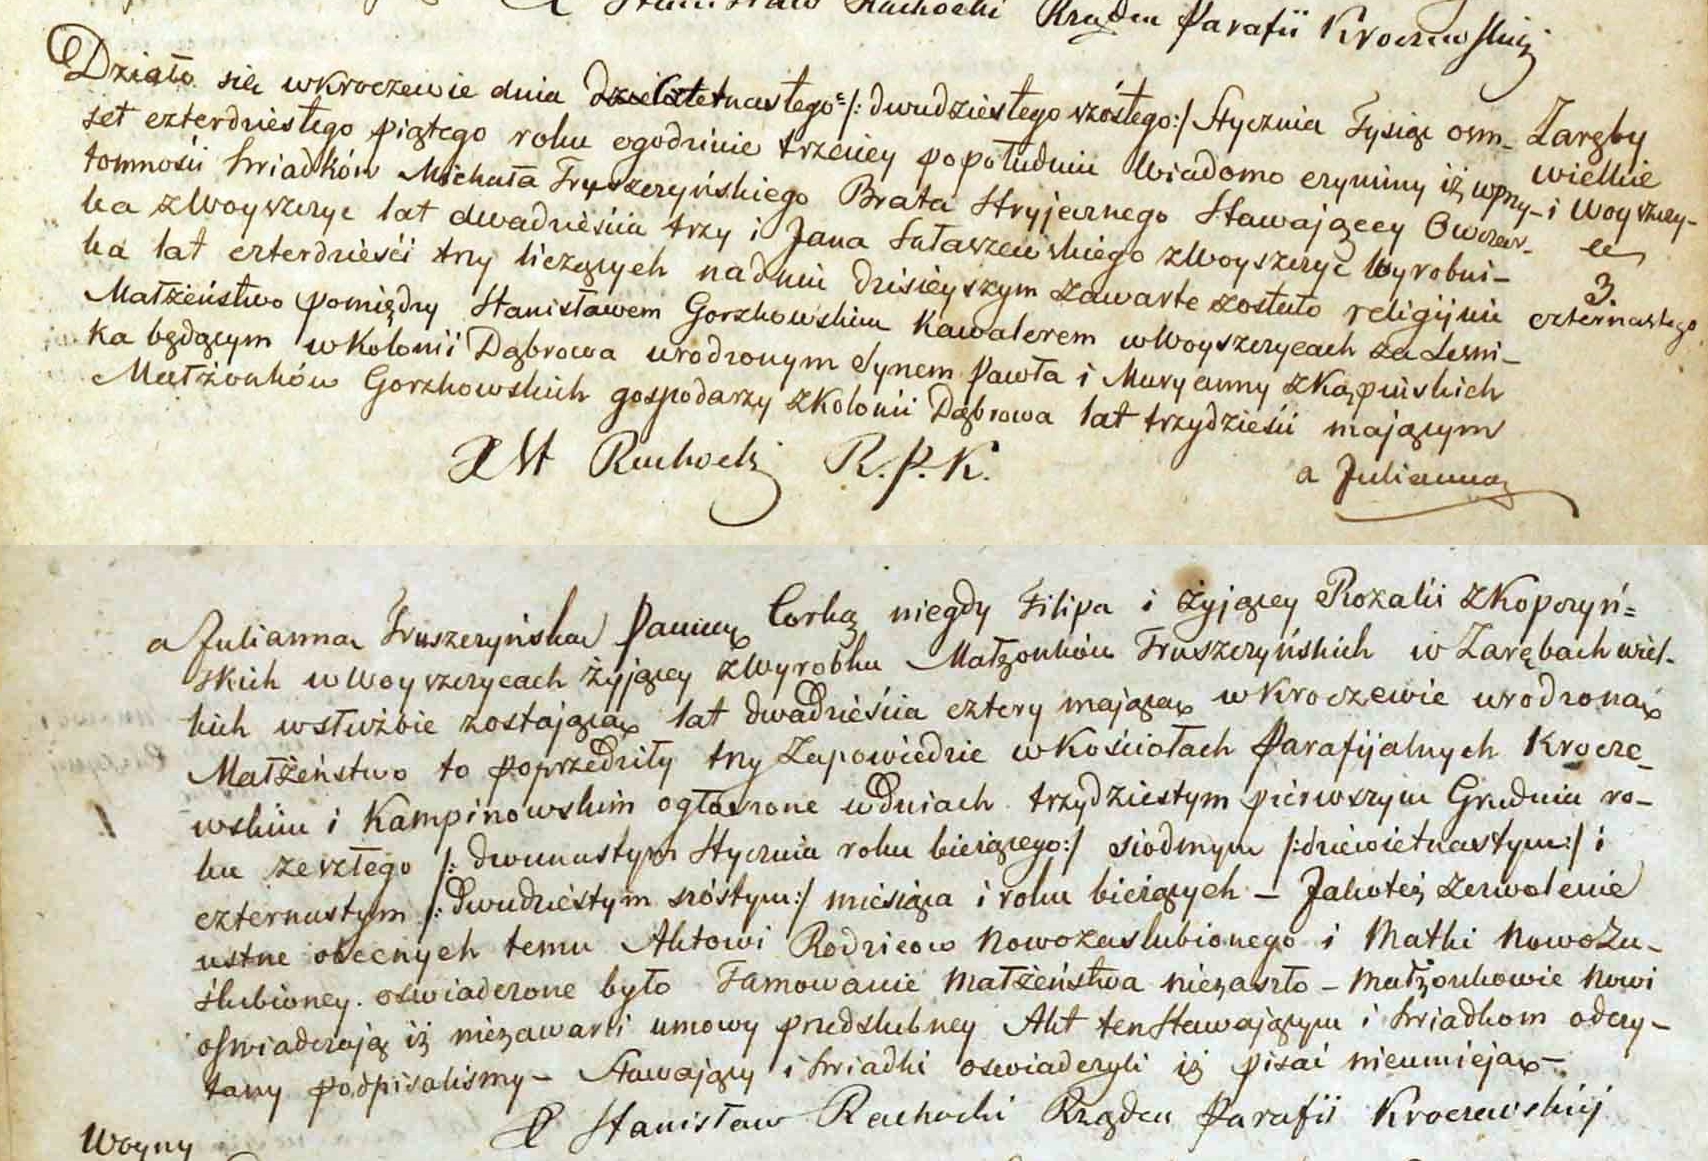 X Stanisław Rachocki Rządca Parafii Kroczewskiej
Działo się w Kroczewie dnia Czternastego /: dwudziestego szóstego:/ Stycznia Tysiąc osm-
set czterdziestego piątego roku o godzinie trzeciey popołudniu Wiadomo czyniemy iż w przy-
tomności świadków Michała Truszczyńskiego Brata Stryjecznego Stawającey Owczar-
ka z Woyszczyc lat dwadzieścia trzy i Jana Sułaszewskiego z Woyszczyc Wyrobni-
ka lat czterdzieści trzy liczących na dniu dzisieyszym zawarte zostało religijnie
Małżeństwo pomiędzy Stanisławem Gorzkowskim Kawalerem w Woyszczycach za Leśni-
ka będącym w Kolonii Dąbrowa urodzonym Synem Pawła i Maryanny z Kąpińskich
Małżonków Gorzkowskich gospodarzy z Kolonii Dąbrowa lat trzydzieści mającym
X St Rachocki R. P. K.
a Julianną
Zaręby
wielkie
i Woyszczy-
ce
3.
czternastego
a Julianną Truszczyńską Panną Córką niegdy Filipa i żyjącey Rozalii z Kopczyń=
skich w Woyszczycach żyjącey z Wyrobku Małżonków Truszczyńskich w Zarębach wiel-
kich w służbie zostającą lat dwadzieścia cztery mającą w Kroczewie urodzoną
Małżeństwo to poprzedziły trzy Zapowiedzie w Kościołach Parafijalnych Krocze-
wskim i Kampinowskim ogłoszone w dniach trzydziestym pierwszym Grudnia ro-
ku zeszłego /: dwunastym Stycznia roku bieżącego:/ siodmym /:dziewietnastym:/ i
czternastym /: dwudziestym szóstym:/ miesiąca i roku bieżących – Jakoteż zezwolenie
ustne obecnych temu Aktowi Rodziców Nowozaslubionego i Matki NowoZa-
ślubioney oświadczone było Tamowanie Małżeństwa niezaszło – Małżonkowie Nowi
oświadczają iż niezawarli umowy przedslubney Akt ten Stawającym i świadkom odczy-
tany podpisaliśmy – Stawający i świadki oswiadczyli iż pisać nieumieją –
X Stanisław Rachocki Rządca Parafii Kroczewskiej
Woyny